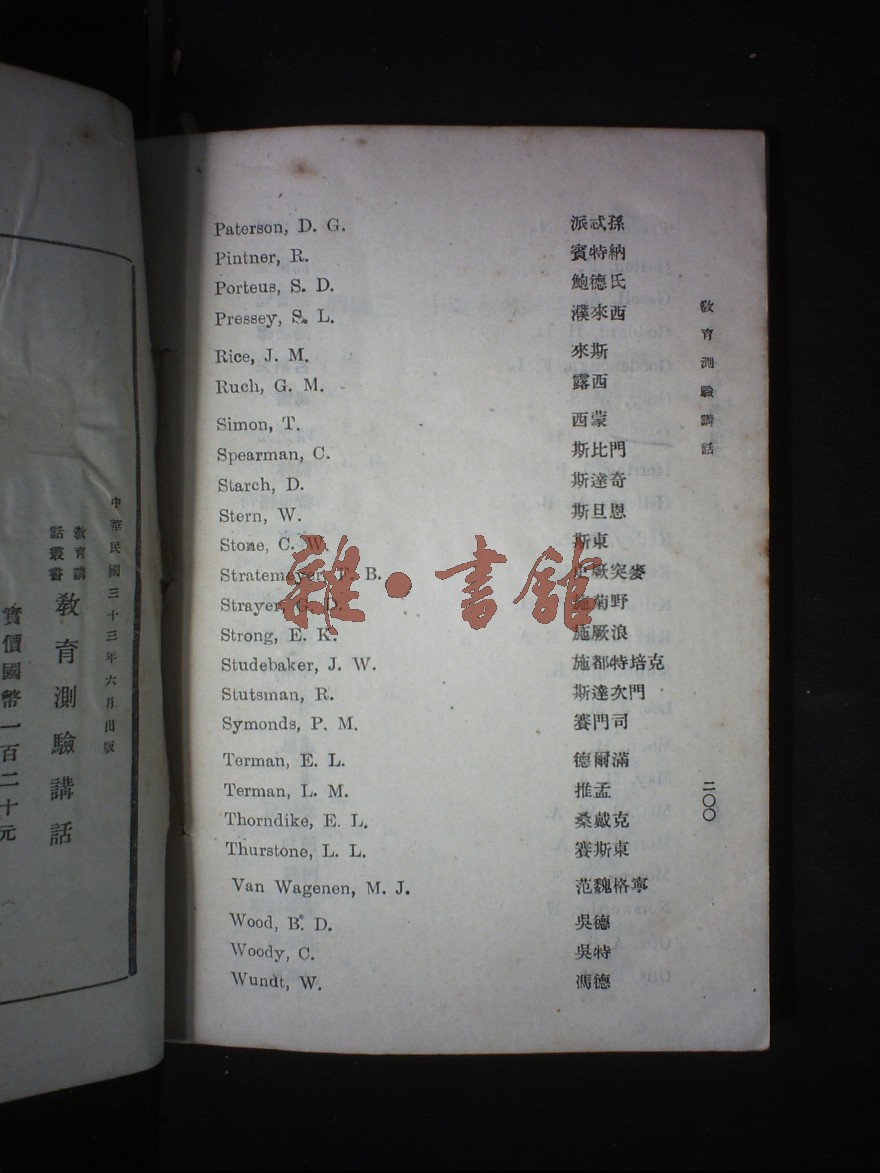 Paterson, D. G. 派忒孫
Pintner, R. 賓特納
Porteus, S. D. 鮑德氏
Pressey, S. L. 濮來西
Rice, J. M. 來斯
Ruch, G. M. 露西
Simon, T. 西蒙
Spearman, C. 斯比門
Starch, D. 斯達奇
Stern, W. 斯旦恩
Stone, C. W. 斯東
Stratemeyer, F. B. 史厥突麥
Strayer, G. D. 施菊野
Strong, E. K. 施厥浪
Studebaker, J. W. 施都特培克
Stutsman, R. 斯達次門
Symonds, P. M. 賽門司
Terman, E. L. 德爾滿
Terman, L. M. 推孟
Thorndike, E. L. 桑戴克
Thurstone, L. L. 賽斯東
Van Wagenen, M. J. 范魏格寧
Wood, B. D. 吳德
Woody, C. 吳特
Wundt, W. 馮德
教育測驗講話
二〇〇
雜·書館
中華民國三十三年六月出版
教育講
話叢書
教育測驗講話
實價國幣一百二十元